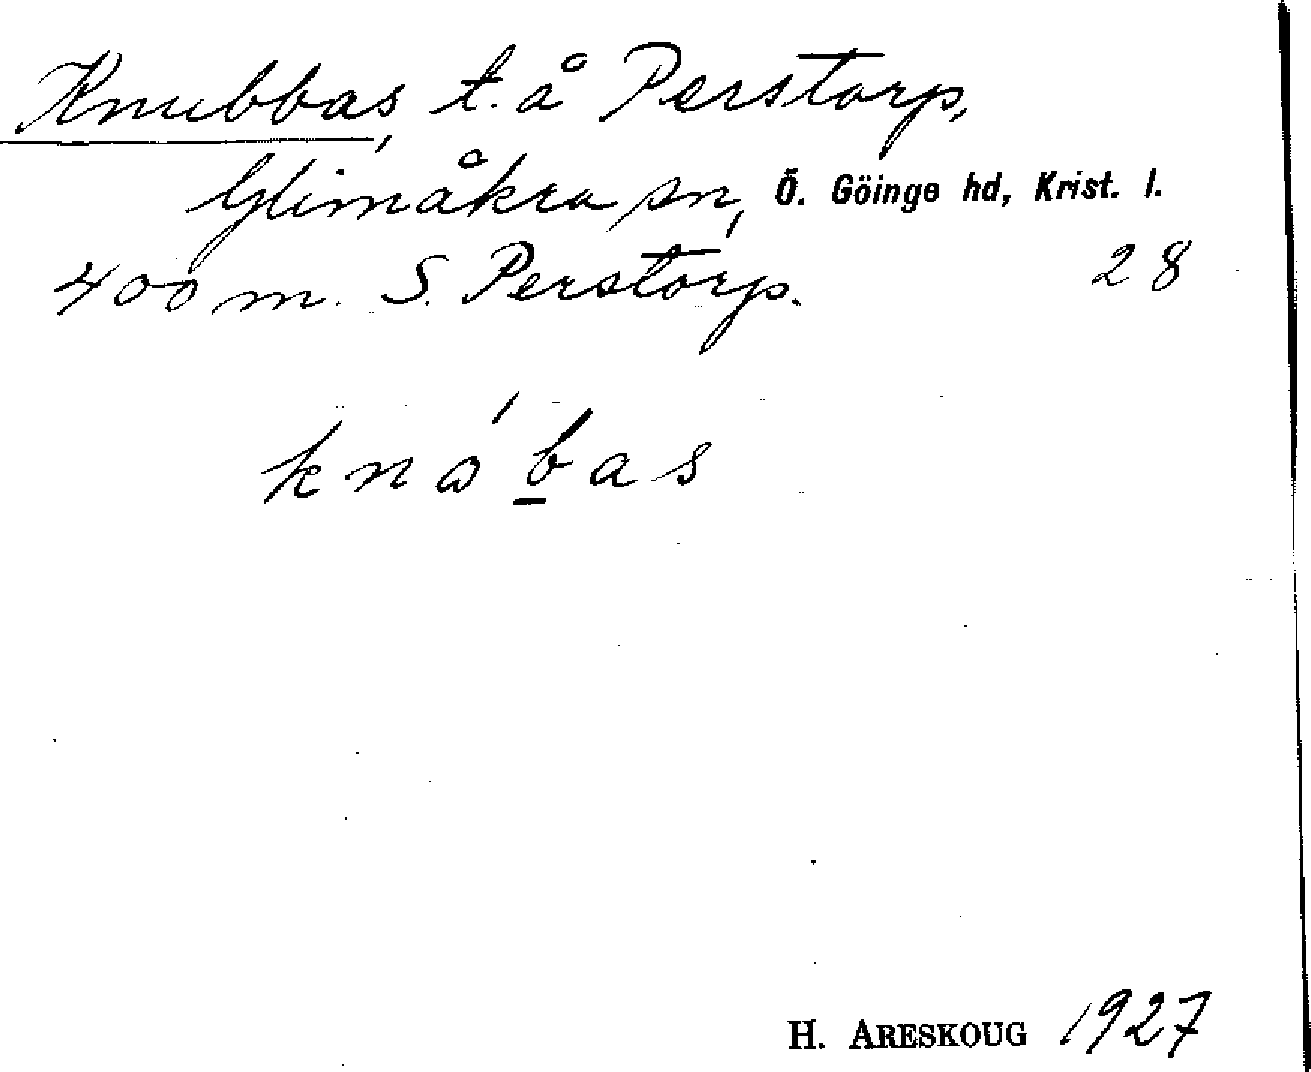 Knubbas, t. å Perstorp,
Glimåkra sn, Ö. Göinge hd, Krist. l.
400 m. S. Perstorp. 28
knɷ́b̲as
H. ARESKOUG 1927